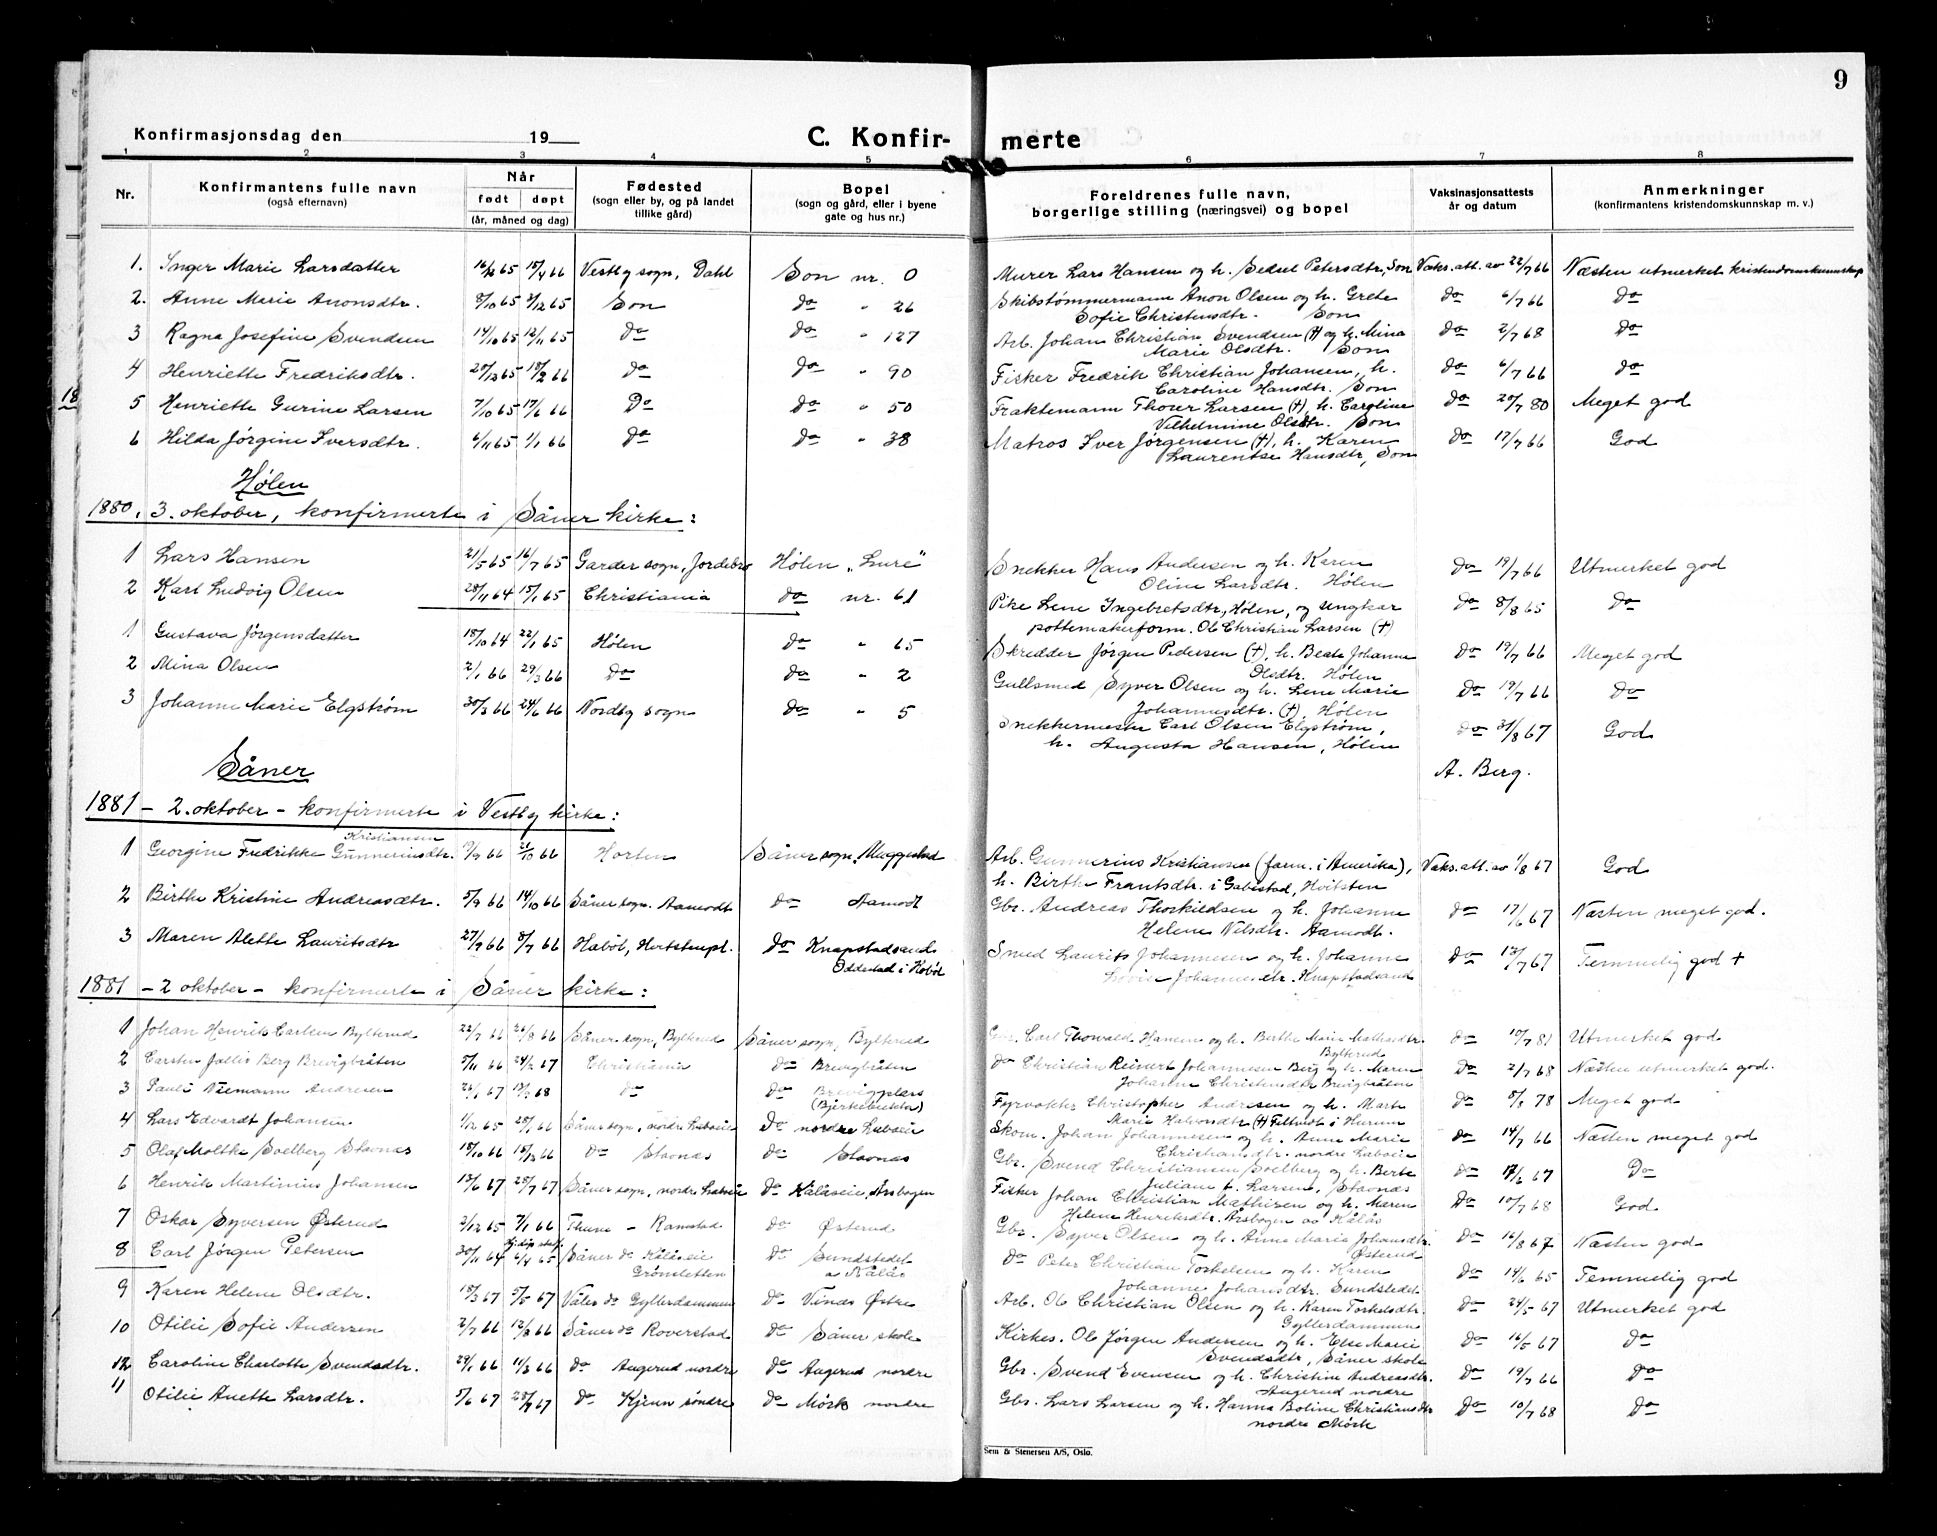 9
Konfirmasjonsdag den 19
C. Konfir- merte
1 2 3 4 5 6 7 8
Nr. Konfirmantens fulle navn (også efternavn) Når født døpt (år, måned og dag) Fødested (sogn eller by, og på landet tillike gård) Bopel (sogn og gård, eller i byene gate og hus nr.) Foreldrenes fulle navn, borgerlige stilling (næringsvei) og bopel Vaksinasjonsattests år og datum Anmerkninger (konfirmantens kristendomskunnskap m. v.)
1. Inger Marie Larsdatter 16/12 65 15/4 66 Vestby sogn, Dahl Son nr. 0 Murer Lars Hansen og h. Sedsel Petersdtr, Son Vaks. att. av 22/7 66 Næsten utmerket kristendomskunnskap
2. Anne Marie Anonsdtr. 8/10 65 3/12 65 Son do " 26 Skibstømmermann Anon Olsen og h. Grete do 6/7 66 do
Sofie Christensdtr. Son
3 Ragna Josefine Svendsen 14/10 65 12/11 65 do do " 127 Arb. Johan Christian Svendsen (†) og h. Mina do 2/7 68 do
Marie Olsdtr. Son
4 Henriette Fredriksdtr. 28/12 65 18/2 66 do do " 90 Fisker Fredrik Christian Johansen, h. do 6/7 66 do
Caroline Hansdtr. Son
5 Henriette Gurine Larsen 7/10 65 17/6 66 Do do " 50 Fraktemann Thorer Larsen (†), h. Caroline do 20/7 80 Meget god
Vilhelmine Olsdtr. Son
6 Hilda Jørgine Iversdtr. 4/11 65 1/1 66 do do " 38 Matros Iver Jørgensen (†), h. Karen do 17/7 66 God
Laurentse Hansdtr, Son
Hølen
1880, 3. oktober, konfirmerte i Såner kirke:
1 Lars Hansen 21/5 65 16/7 65 Garder sogn, Jordebro Hølen "Lure" Snekker Hans Andersen og h. Karen do 19/7 66 Utmerket god
Oline Larsdtr. Hølen
2 Karl Ludvig Olsen 28/11 64 15/1 65 Christiania do nr. 61 Pike Lene Ingebretsdtr, Hølen, og ungkar do 8/8 65 do
pottemakerform. Ole Christian Larsen (†)
1 Gustava Jørgensdatter 18/10 64 22/1 65 Hølen do " 65 Skredder Jørgen Pedersen (†), h. Beate Johanne do 19/7 66 Meget god
Olsdtr. Hølen
2 Mina Olsen 2/1 66 29/3 66 Do do " 2 Gullsmed Syver Olsen og h. Lene Marie do 19/7 66 Do
Johannesdtr. (†), Hølen
3 Johanne Marie Elgstrøm 30/3 66 24/6 66 Nordby sogn do " 5 Snekkermester Carl Olsen Elgstrøm, do 31/8 67 God
h. Augusta Hansen, Hølen
A. Berg.
Såner
1881 - 2. oktober - konfirmerte i Vestby kirke:
Kristiansen
1 Georgine Fredrikke Gunneriusdtr. 19/9 66 21/10 66 Horten Såner sogn, Muggestad Arb. Gunnerius Kristiansen (farm. i Amerika), Vaks. att. av 1/8 67 God
h. Birthe Frantsdtr. i Gabestad, Hvitsten
2 Birthe Kristine Andreasdtr. 5/9 66 14/10 66 Såner sogn. Aamodt do Aamodt Gbr. Andreas Thorkildsen og h. Johanne do 17/6 67 Næsten meget god.
Helene Nilsdtr. Aamodt.
3 Maren Alette Lauritsdtr 27/2 66 8/7 66 Habøl, do Knapstadsand Smed Laurits Johannesen og h. Johanne do 13/7 67 Temmelig god +
Oddestad i Kobøl Johannesdtr. Knapstadsand
1881 - 2 oktober - konfirmerte i Såner kirke:
1 Johan Henrik Carlsen Bylterud 22/7 66 26/8 66 Såner sogn, Bylterud Såner sogn, Bylterud Gbr. Carl Thorvald Hansen og h. Berthe Marie Mathisdtr do 10/7 81 Utmerket god
Bylterud
2 Carsten Berg Brevigbråten 5/11 66 24/2 67 Christiania do Brevigbråten do Christian Reinert Johannesen Berg og h. Maren do 2/7 68 Næsten utmerket god.
Johanne Christensdtr Brevigbråten
3 Pauli Niemann Andresen 26/1 67 13/3 68 do do Brevigplass Fyrvokter Christopher Andresen og h. Marte do 8/8 78 Meget god
(Bjerkebekke) Marie Halvorsdtr (†) Filtvedt i Hurum
4 Lars Edvardt Johansen 1/12 65 28/1 66 Såner sogn, nordre Labøeie Do nordre Labøeie Skom. Johan Johannesen og h. Anne Marie do 14/7 66 Næsten meget god
Christiansdtr nordre Labøeie
5 Olaf Moltke Soelberg Stavnæs 18/10 66 15/12 66 do Stavnæs do Stavnæs Gbr. Svend Christiansen Soelberg og h. Berte do 17/6 67 Do
Juliane f. Larsen, Stavnæs
6 Henrik Martinius Johansen 13/6 67 28/7 67 Såner sogn, nordre Labøeie do Kålåseie, Årsbogen Fisker Johan Christian Mathisen og h. Maren do 10/7 68 God
Helene Henriksdtr. Årsbogen av Kålås
7 Oskar Syversen Østerud 2/12 65 7/1 66 Thune - Ramstad do Østerud Gbr. Syver Olsen og h. Anne Maria Johansdtr. do 16/8 67 Næsten god
Østerud
8 Carl Jørgen Petersen 30/11 64 6/4 65 Såner do Kålåseie do Sundstedet do Peter Christian Torkelsen og h. Karen do 14/6 65 Temmelig god
Grønsletten a Kålås Johanne Johansdtr. Sundstedet
9 Karen Helene Olsdtr. 18/3 67 5/5 67 Våler do Gylterdammen do Vinæs Østre Arb. Ole Christian Olsen og h. Karen Torkelsdtr. do 24/5 67 Utmerket god
Gylterdammen
10 Otilie Sofie Andersen 2/7 66 12/8 66 Såner do Roverstad do Såner skole Kirkes. Ole Jørgen Andersen og h. Else Marie do 16/5 67 Do
Svendsdtr, Såner skole
12 Caroline Charlotte Svendsdtr. 29/1 66 11/3 66 do Augerud nordre do Augerud nordre Gbr. Svend Evensen og h. Christine Andreasdtr. do 19/7 66 Do
Augerud nordre
11 Otilie Anette Larsdtr. 5/6 67 28/7 67 do Kjenn søndre do Mørk nordre Gbr. Lars Larsen og h. Hanna Boline Christiansdtr do 10/7 68 Do
nordre Mørk
Sem & Stenersen A/S, Oslo.
18